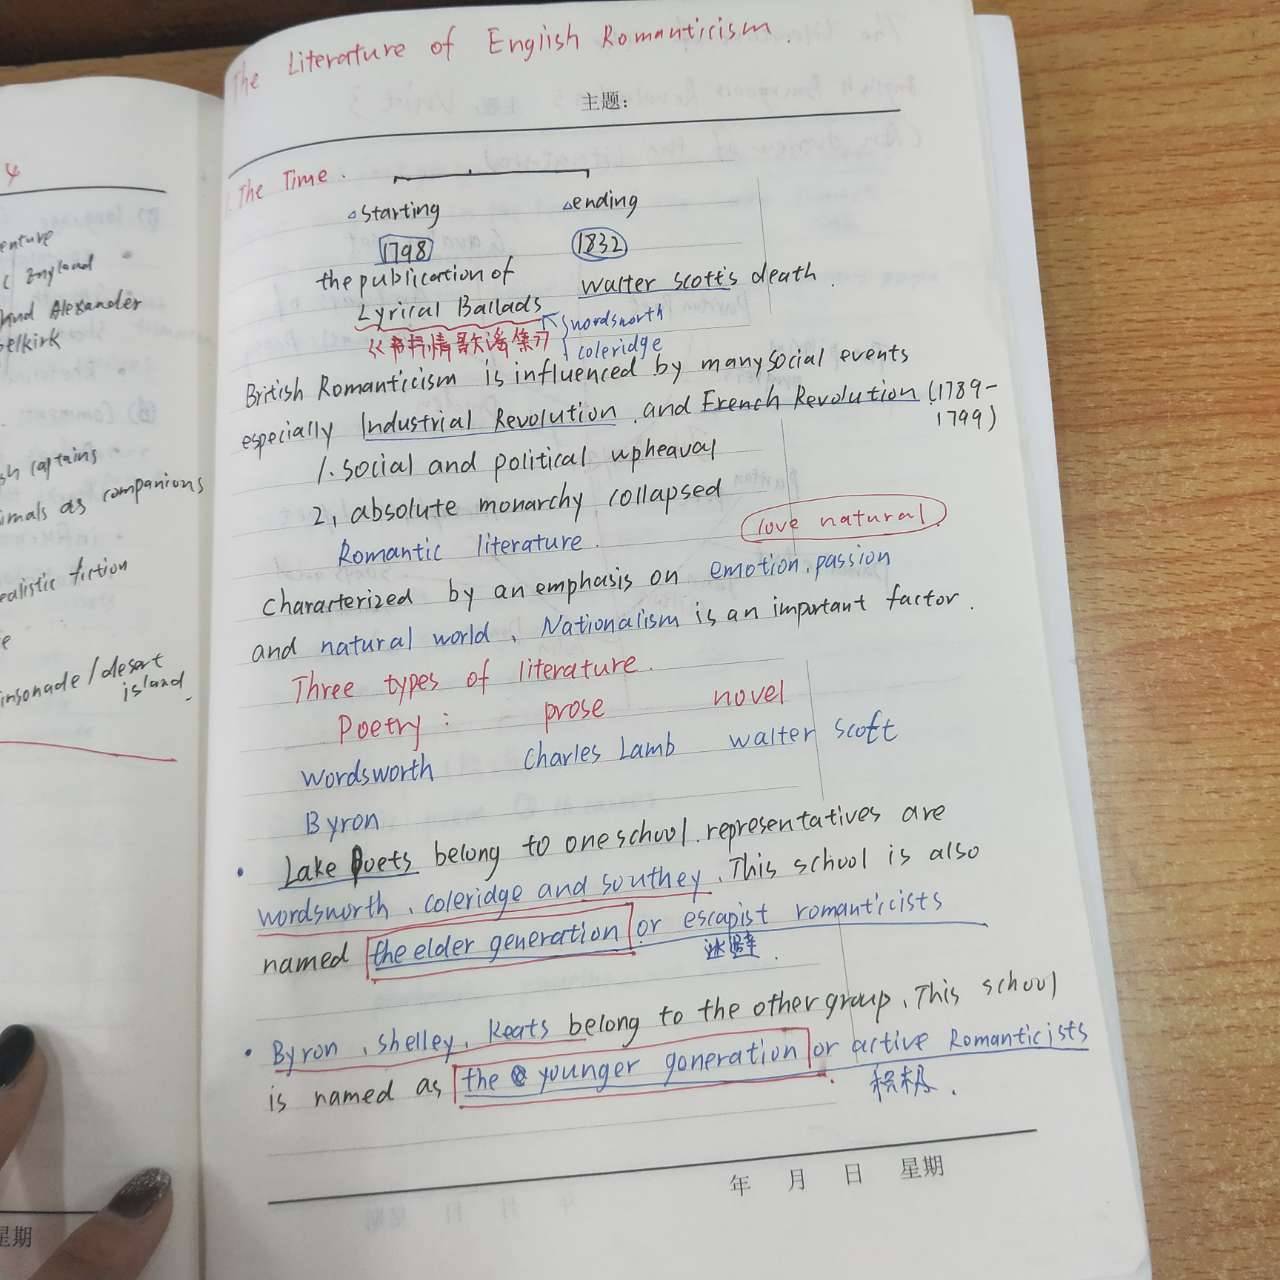 4
enture
England
and Alexander
elkirk
sh captains
imals as companions
ealistic fiction
e
insonade/desert
island
星期
The Literature of English Romanticism.
主题:
1. The Time.
△starting △ending
1798 1832
the publication of walter scott's death.
Lyrical Ballads wordsworth
《抒情歌谣集》 coleridge
British Romanticism is influenced by many social events
especially Industrial Revolution and French Revolution (1789-
1799)
1. social and political upheaval
2, absolute monarchy collapsed
love natural
Romantic literature.
characterized by an emphasis on emotion, passion
and natural world, Nationalism is an important factor.
Three types of literature.
Poetry: prose novel
wordsworth Charles Lamb walter scott
Byron
• Lake Poets belong to one school. representatives are
wordsworth, coleridge and southey. This school is also
named the elder generation or escapist romanticists
逃避.
• Byron, shelley, Keats belong to the other group, This school
is named as the younger generation or active Romanticists
积极.
年 月 日 星期